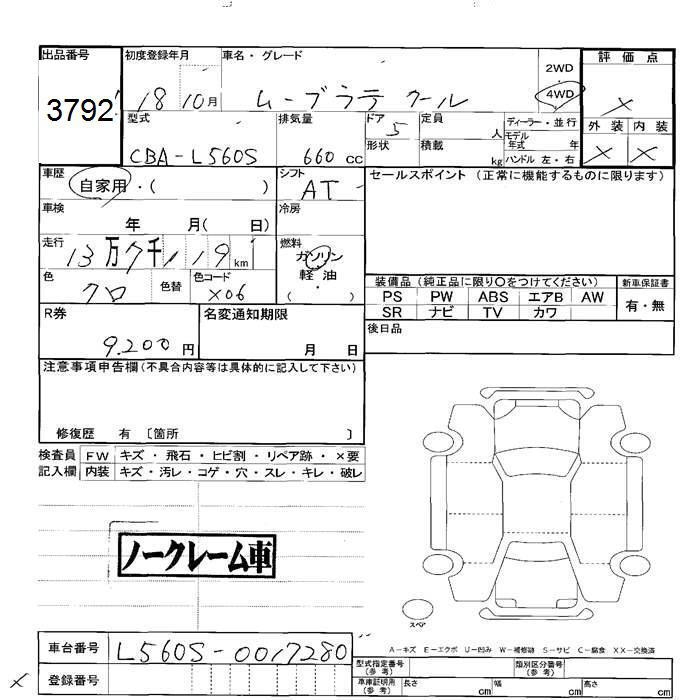 出品番号 初度登録年月 車名・グレード 2WD 評価点
3792 18 10月 ムーブラテ クール 4WD ×
型式 排気量 ドア 定員 ディーラー・並行 外装 内装
CBA-L560S 660 cc 5 人 モデル年式 年 × ×
形状 積載 kg ハンドル 左・右
車歴 シフト セールスポイント (正常に機能するものに限ります)
自家用・( ) AT
車検 冷房
年 月( 日)
走行 燃料
13万7千119km ガソリン
軽・油
色 色替 色コード ( ・ )
クロ X06
装備品 (純正品に限り○をつけてください) 新車保証書
PS PW ABS エアB AW 有・無
SR ナビ TV カワ
R券 名変通知期限 後日品
9.200円 月 日
注意事項申告欄(不具合内容等は具体的に記入して下さい)
修復歴 有 〔箇所 〕
検査員 FW キズ・飛石・ヒビ割・リペア跡・×要
記入欄 内装 キズ・汚レ・コゲ・穴・スレ・キレ・破レ
ノークレーム車
スペア
A-キズ E-エクボ U-凹み W-補修跡 S-サビ C-腐食 XX-交換済
車台番号 L560S-0017280
型式指定番号(参考) 類別区分番号(参考)
× 登録番号
車庫証明用(参考) 長さ cm 幅 cm 高さ cm